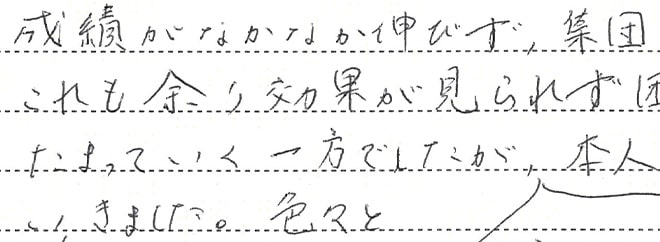 成績がなかなか伸びず、集団
これも余り効果が見られず困
たまっていく一方でしたが、本人
いきました。色々と